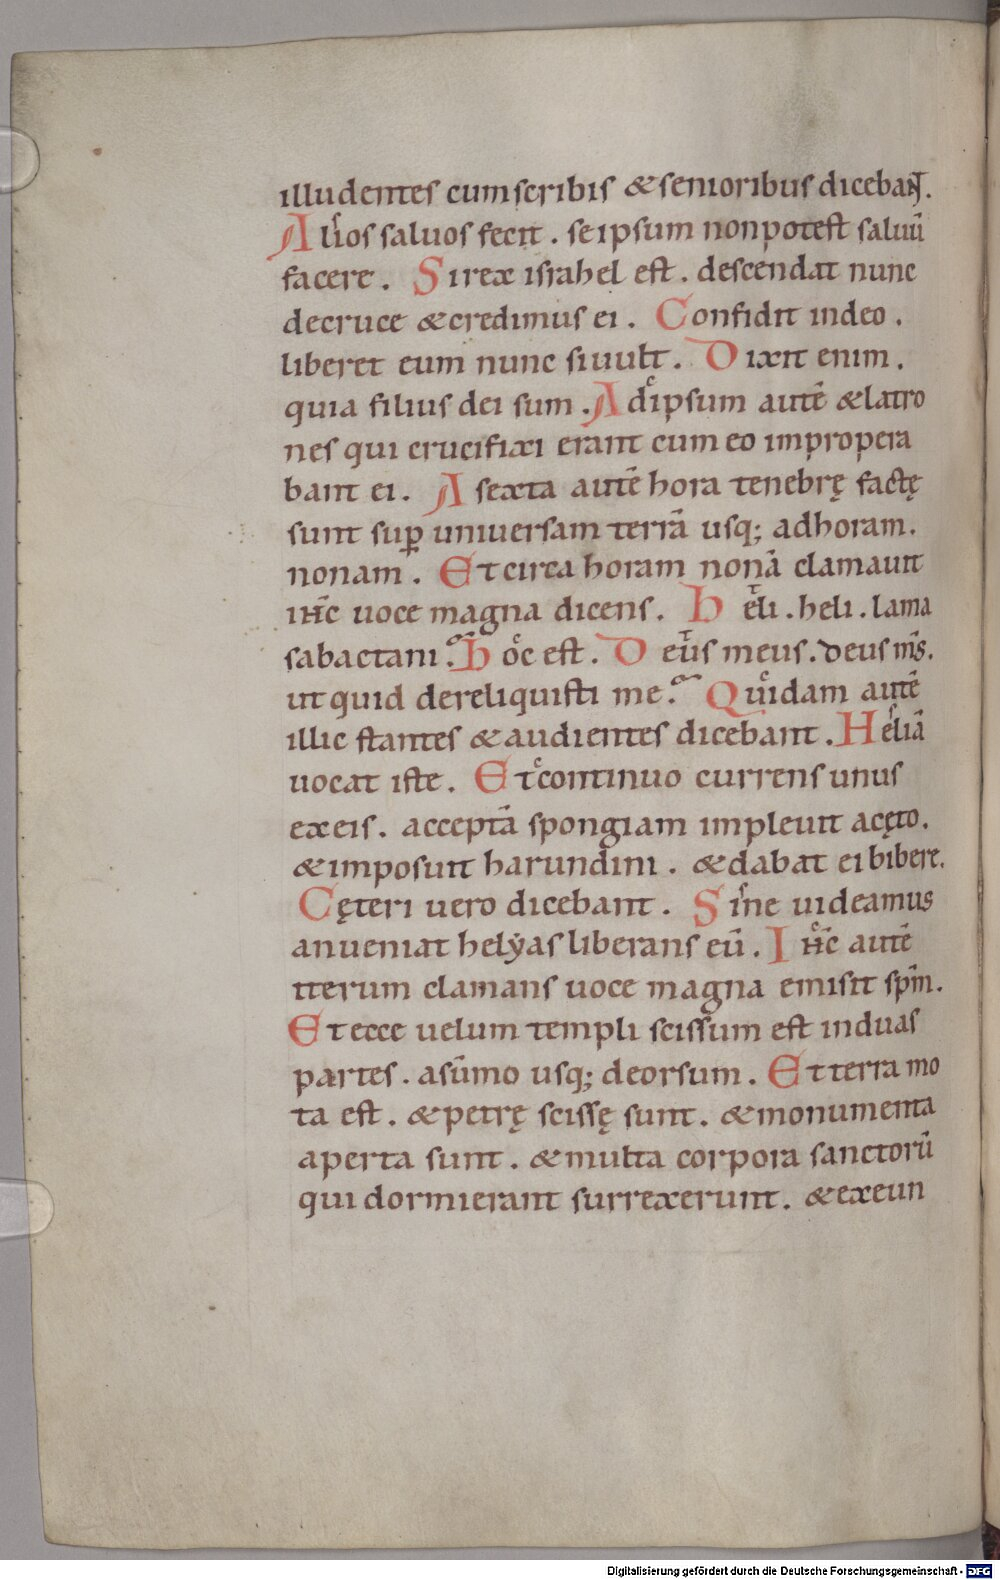 illudentes cum scribis & senioribus diceban̄t.
Alios saluos fecit. se ipsum non potest saluū
facere. Si rex israhel est. descendat nunc
de cruce & credimus ei. Confidit in deo.
liberet eum nunc si uult. Dixit enim.
quia filius dei sum. Ad ipsum autē & latro
nes qui crucifixi erant cum eo impropera
bant ei. A sexta autē hora tenebrę factę
sunt suꝑ uniuersam terrā usq; ad horam.
nonam. Et circa horam nonā clamauit
ihc̄ uoce magna dicens. Heli. heli. lama
sabactani. Hoc est. Deus meus. deus m̄s.
ut quid dereliquisti me. Quidam autē
illic stantes & audientes dicebant. Heliā
uocat iste. Et continuo currens unus
ex eis. acceptā spongiam impleuit acęto.
& imposuit harundini. & dabat ei bibere.
Cęteri uero dicebant. Sine uideamus
an ueniat helẏas liberans eū. Ihc̄ autē
iterum clamans uoce magna emisit spm̄.
Et ecce uelum templi scissum est in duas
partes. a sūmo usq; deorsum. Et terra mo
ta est. & petrę scissę sunt. & monumenta
aperta sunt. & multa corpora sanctorū
qui dormierant surrexerunt. & exeun
Digitalisierung gefördert durch die Deutsche Forschungsgemeinschaft - DFG